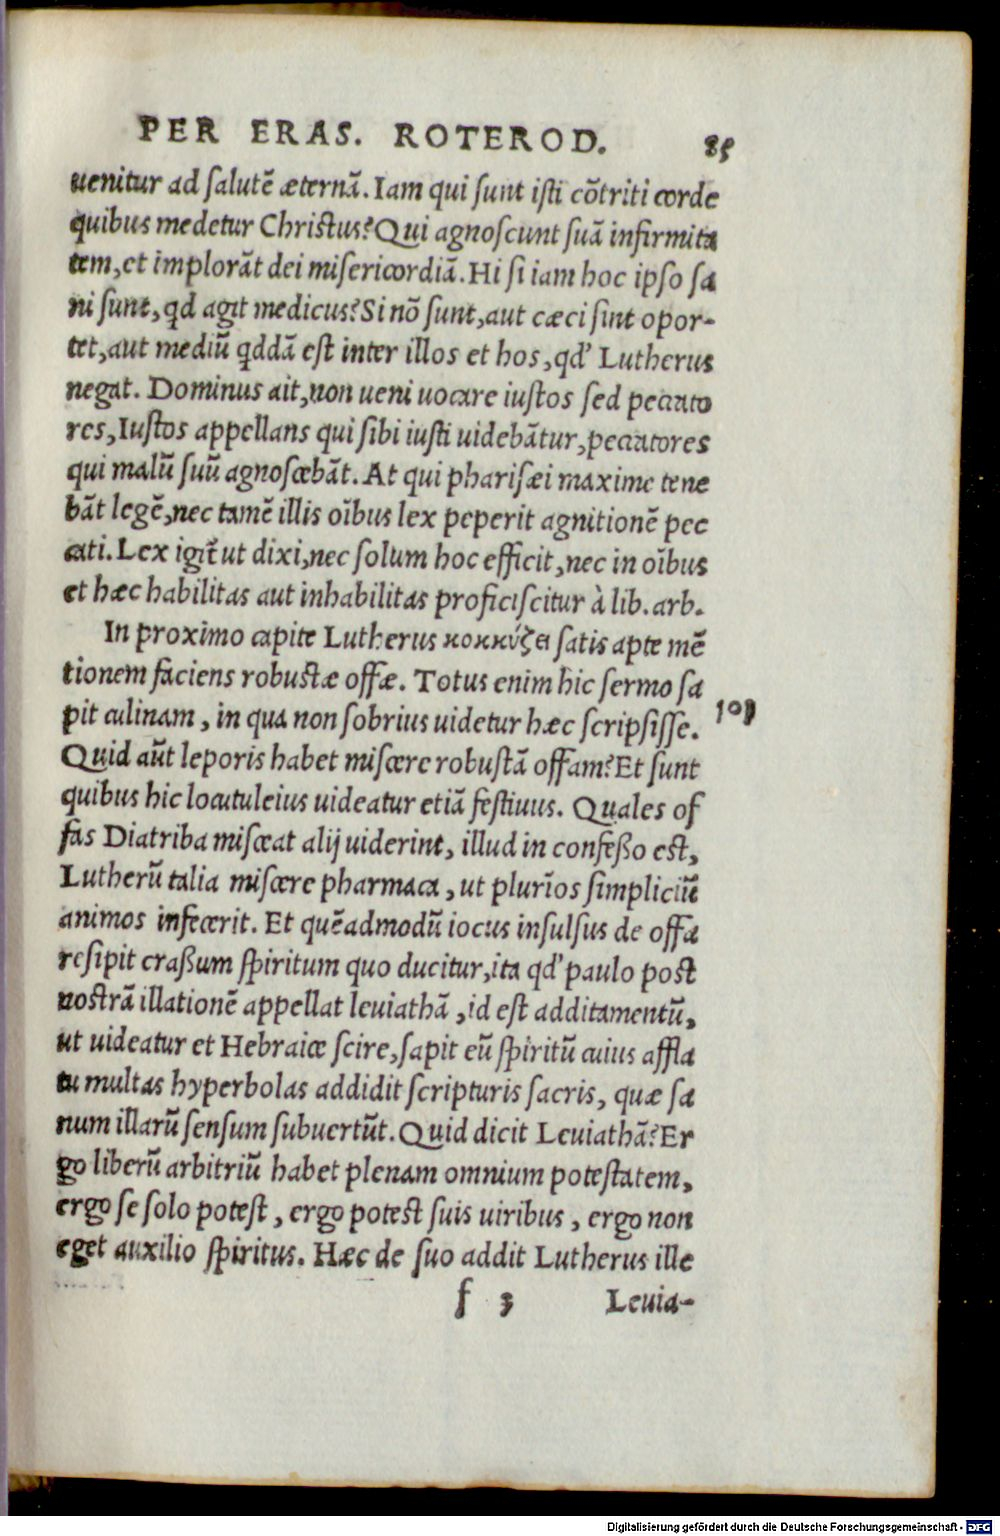 PER ERAS. ROTEROD. 85
uenitur ad ſalutē æternā. Iam qui ſunt iſti cōtriti corde
quibus medetur Chriſtus? Qui agnoſcunt ſuā infirmita
tem, et implorāt dei miſericordiā. Hi ſi iam hoc ipſo ſa
ni ſunt, qd agit medicus? Si nō ſunt, aut cæci ſint opor-
tet, aut mediū qddā eſt inter illos et hos, qd' Lutherus
negat. Dominus ait, non ueni uocare iuſtos ſed peccato
res, Iuſtos appellans qui ſibi iuſti uidebātur, peccatores
qui malū ſuū agnoſcebāt. At qui phariſæi maxime tene
bāt legē, nec tamē illis oībus lex peperit agnitionē pec
cati. Lex igit̄ ut dixi, nec ſolum hoc efficit, nec in oībus
et hæc habilitas aut inhabilitas proficiſcitur à lib. arb.
In proximo capite Lutherus κοκκύζει ſatis apte mē
tionem faciens robuſtæ offæ. Totus enim hic ſermo ſa
pit culinam, in qua non ſobrius uidetur hæc ſcripſiſſe.
103
Quid aūt leporis habet miſcere robuſtā offam? Et ſunt
quibus hic locutuleius uideatur etiā feſtiuus. Quales of
fas Diatriba miſceat alij uiderint, illud in confeßo eſt,
Lutherū talia miſcere pharmaca, ut plurīos ſimpliciū
animos infecerit. Et quēadmodū iocus inſulſus de offa
reſipit craßum ſpiritum quo ducitur, ita qd' paulo poſt
noſtrā illationē appellat leuiathā, id eſt additamentū,
ut uideatur et Hebraice ſcire, ſapit eū ſpiritū cuius affla
tu multas hyperbolas addidit ſcripturis ſacris, quæ ſa
num illarū ſenſum ſubuertūt. Quid dicit Leuiathā? Er
go liberū arbitriū habet plenam omnium poteſtatem,
ergo ſe ſolo poteſt, ergo poteſt ſuis uiribus, ergo non
eget auxilio ſpiritus. Hæc de ſuo addit Lutherus ille
f 3 Leuia-
Digitalisierung gefördert durch die Deutsche Forschungsgemeinschaft - DFG